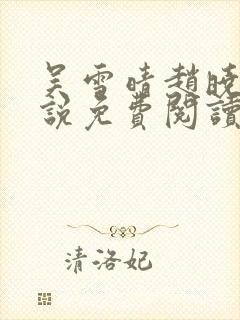 吴雪晴趙晓
說免費閱讀
清洛妃